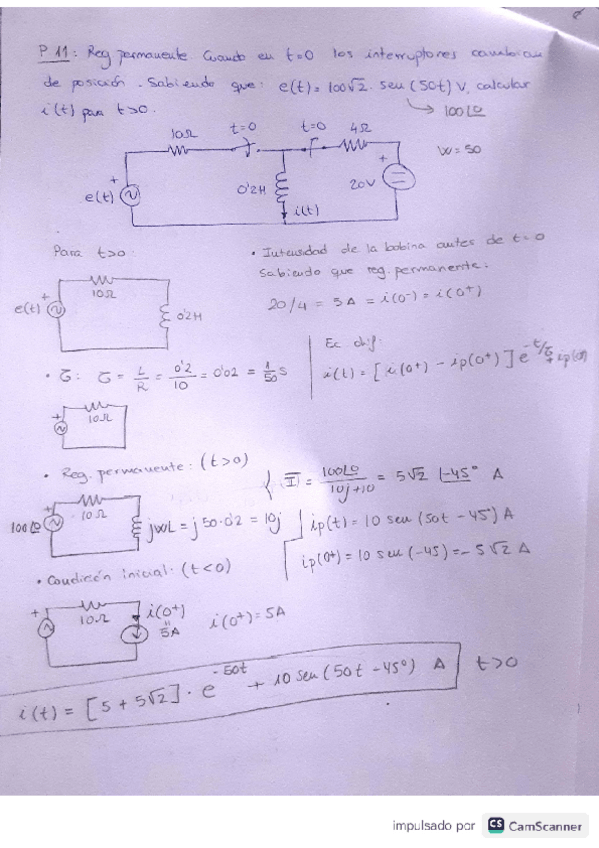 P 11: Reg permanente cuando en t=0 los interruptores cambian
de posición. Sabiendo que: e(t)=100√2. sen (50t) V, calcular
i(t) para t>0.
100∠0
10Ω
t=0
t=0
4Ω
W=50
+
e(t)
0'2H
i(t)
+
20V
Para t>0:
+
e(t)
10Ω
0'2H
• Intensidad de la bobina antes de t=0
sabiendo que reg. permanente:
20/4 = 5A = i(0⁻) = i(0⁺)
• ζ: ζ = L/R = 0'2/10 = 0'02 = 1/50 s
Ec dif:
i(t) = [i(0⁺) - ip(0⁺)] e^(-t/ζ) + ip(t)
+
10Ω
• Reg. permanente: (t>0)
100∠0
+
10Ω
jWL = j 50·0'2 = 10j
I = 100∠0/(10j+10) = 5√2 ∠-45° A
ip(t) = 10 sen (50t - 45°) A
ip(0⁺) = 10 sen (-45) = -5√2 A
• Condición inicial: (t<0)
+
10Ω
i(0⁺)
"
5A
i(0⁺) = 5A
i(t) = [5 + 5√2] · e^(-50t) + 10 sen (50t - 45°) A t>0
impulsado por CS CamScanner